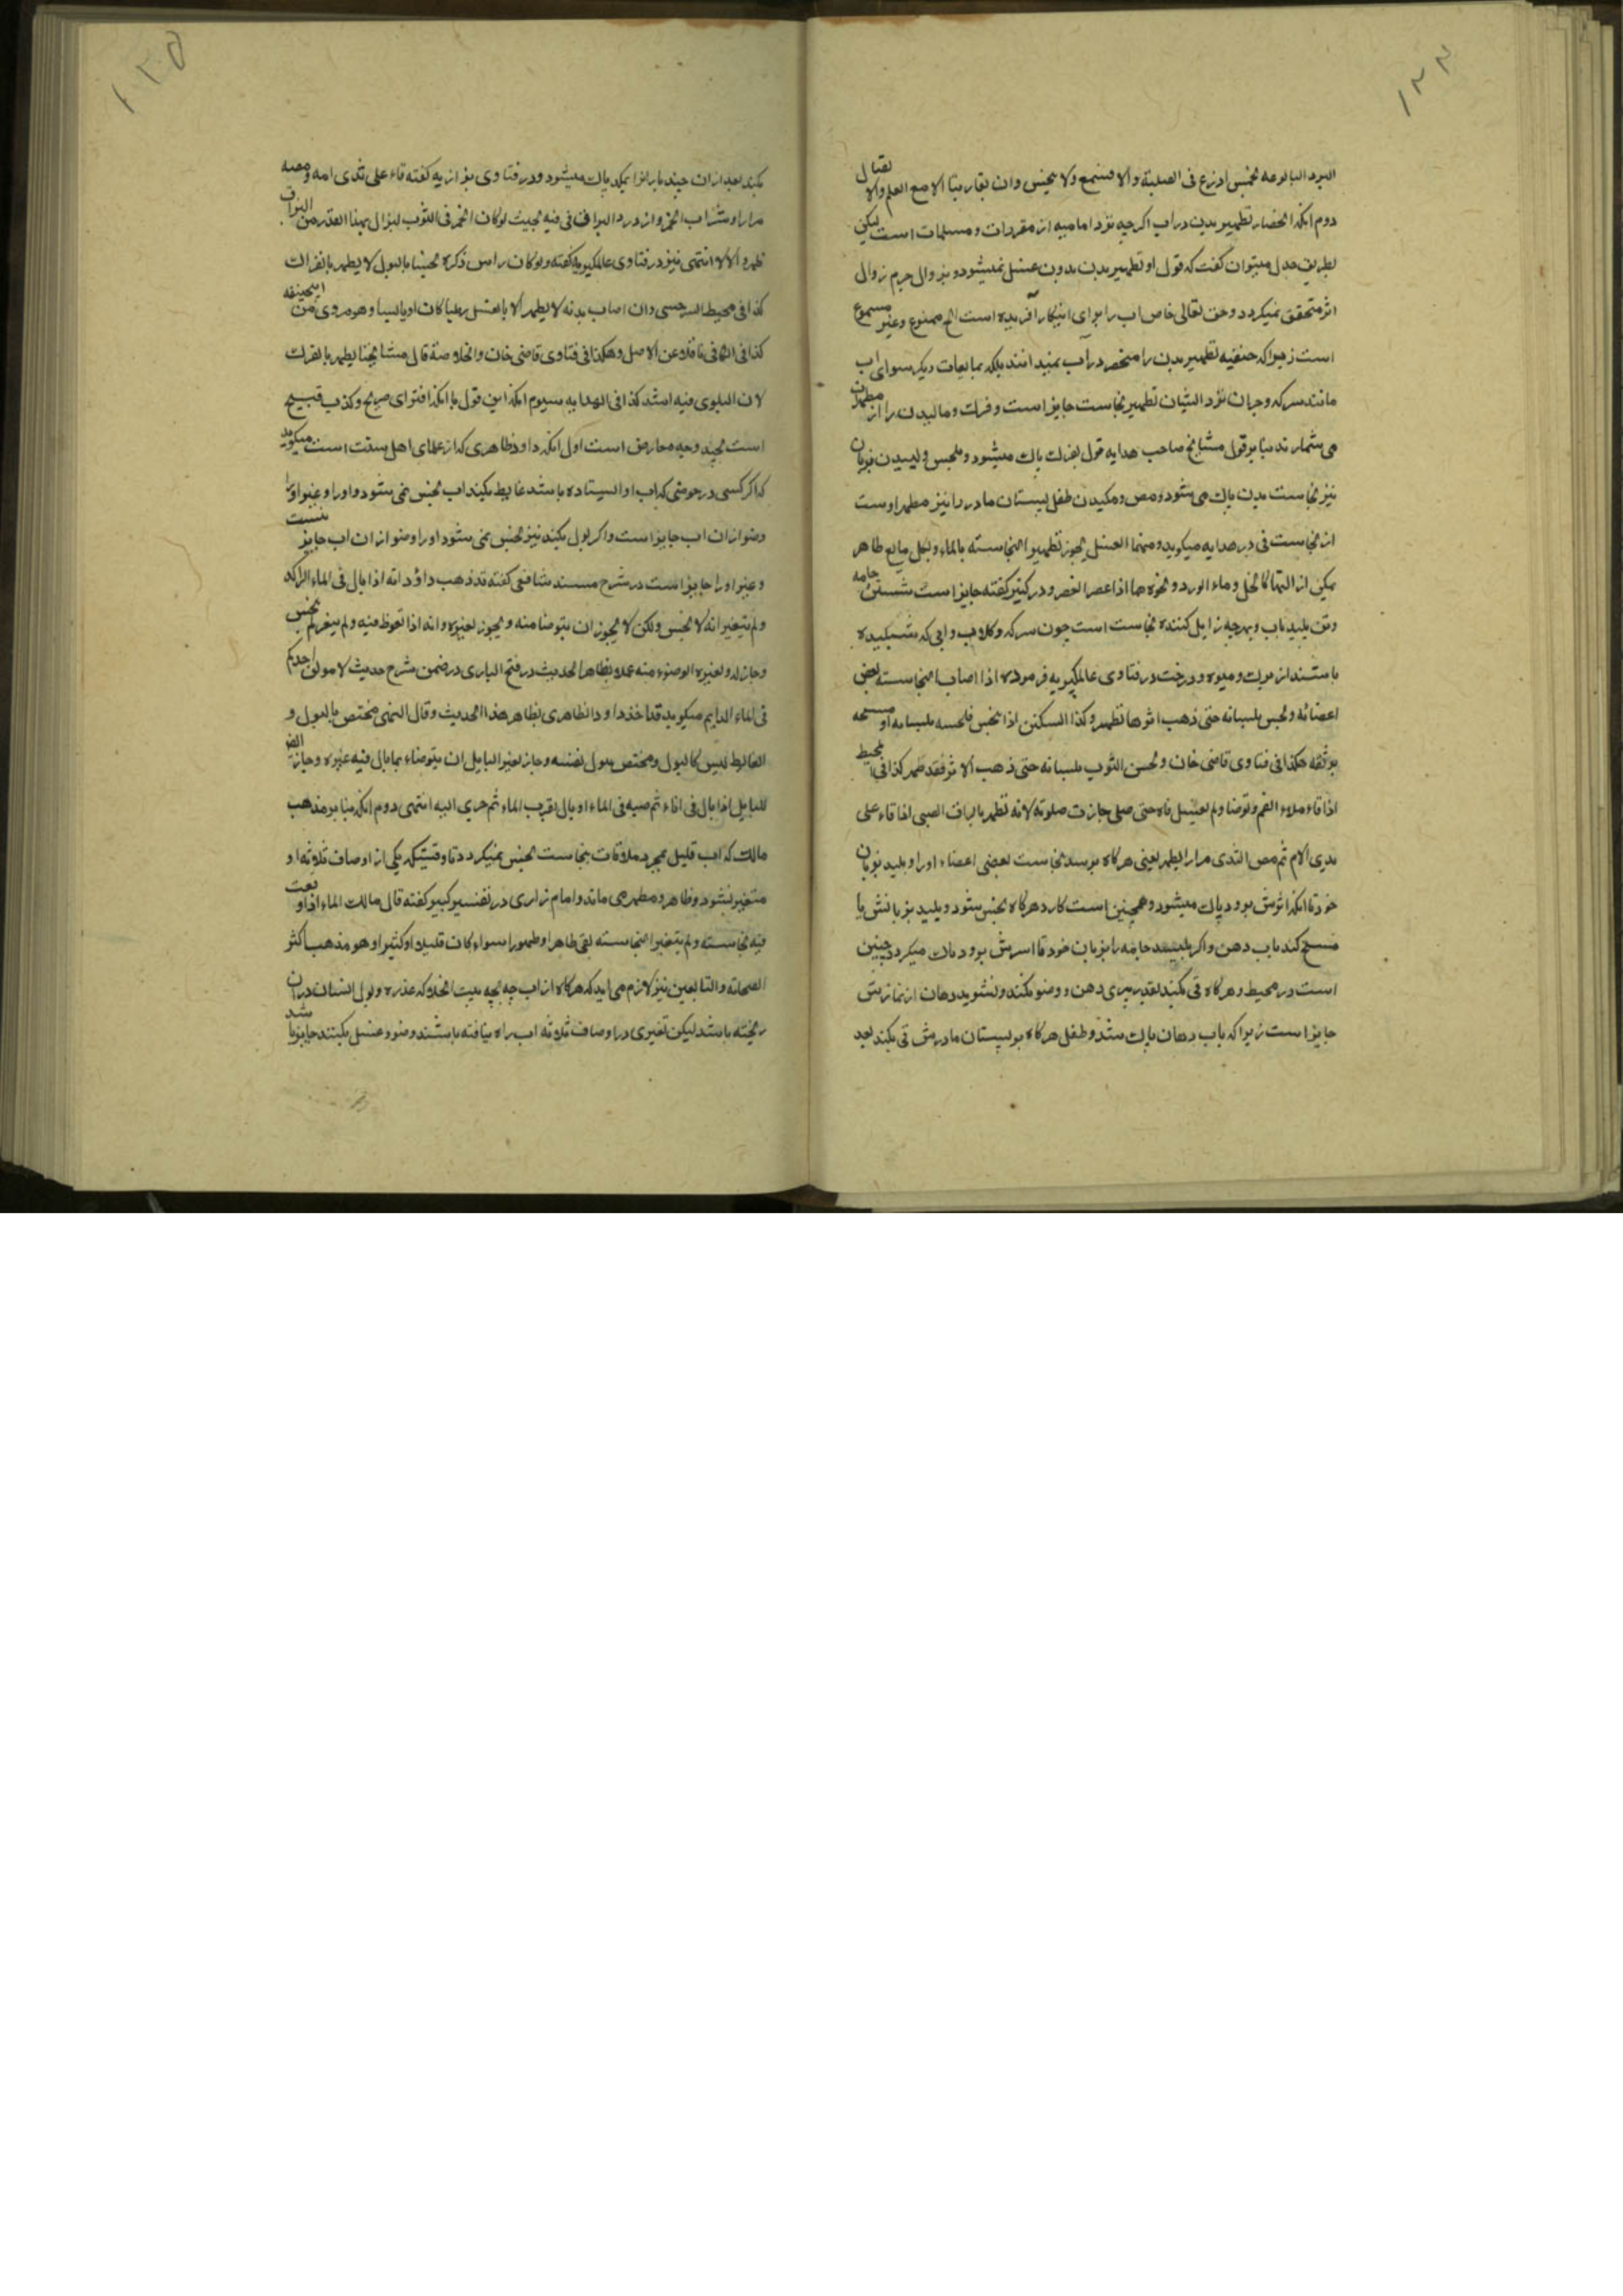 ۱۲۴
دوم آنکه انحصار تطهیر بدن در اب اکرچه نزد امامیه از مقررات و مسلمات است لیکن
بطریق جدل میتوان کفت که قول او تطهیر بدن بدون غسل نمیشود و بزوال جرم زوال
اثر متحقق نمیکردد و حق تعالی خاص اب را برای اینکار آفریده است الخ ممنوع و غیر مسموع
است زیرا که حنفیه تطهیر بدن را منحصر در آب نمیدانند بلکه بمایعات دیکر سوای اب
مانند سرکه و جز ان نزد ایشان تطهیر نجاست جایز است و فرک و مالیدن را از مطهران
می شمارند بنا بر قول مشایخ صاحب هدایه قول بفرک پاک میشود و بلحس و لیسیدن بزبان
نیز نجاست بدن پاک می شود و مص و مکیدن طفل پستان مادر را نیز مطهر اوست
از نجاست قی در هدایه میکوید و منها الغسل یجوز تطهیر النجاسته بالماء و بکل مایع طاهر
یمکن ازالتها کالخل و ماء الورد و نحوه مما اذا عصر انعصر و در کنیز کفته جایز است شستن جامه
و تن پلید باب و بهرچه زایل کننده نجاست است چون سرکه و کلاب و ابی که بشپلیده
باشند از برک و میوه و درخت در فتاوی عالمکیریه فرموده اذا اصاب النجاسته بعض
اعضائه و لحس بلسانه حتی ذهب اثرها تطهر و کذا السکین اذا نجس فلحسه بلسانه او مسحه
بریقه هکذا فی فتاوی قاضی خان و لحس الثوب بلسانه حتی ذهب الاثر فقد طهر کذا فی المحیط
اذا قاء ملاء الفم و توضا و لم یغسل فاه حتی صلی جازت صلوته لانه تطهر بالبزاق الصبی اذا قاء علی
ثدی الام ثم مص الثدی مرارا یطهر یعنی هرکاه برسد نجاست بعضی اعضاء او را و بلیسد بزبان
خود تا انکه اثرش برود پاک میشود و همچنین است کارد هرکاه نجس شود و بلیسد بزبانش یا
مسح کند باب دهن و اکر بلیسد جامه را بزبان خود تا اثرش برود پاک میکردد چنین
است در محیط و هرکاه قی بکند بقدر پری دهن و وضو بکند و نشوید دهان از نمازش
جایز است زیرا که باب دهان پاک شد و طفل هرکاه بر پستان مادرش قی بکند بعد
۱۲۵
بکند بعد از ان چند بار انرا بمکد پاک میشود و در فتاوی بزازیه کفته قاء علی ثدی امه و مصه
مرارا و شراب الخمر و ازدرد البزاق فی فیه بحیث لوکان الخمر فی الثوب لیزال بهذا القدر من البزاق
طهر و الا لا انتهی نیز در فتاوی عالمکیریه کفته و لوکان راس ذکره نجسا بالبول لا یطهر بالفرک
کذا فی محیط السرخسی و ان اصاب بدنه لا یطهر الا بالغسل رطبا کان او یابسا و هو مروی عن ابیحنیفه
کذا فی الکافی ناقلا عن الاصل و هکذا فی فتاوی قاضی خان و الخلاصة قال مشایخنا یطهر بالفرک
لان البلوی فیه اشد کذا فی الهدایه سیوم انکه این قول با انکه افترای صریح و کذب قبیح
است بچند وجه معارض است اول انکه داود ظاهری که از علمای اهل سنت است میکوید
که اکر کسی در حوضی که اب او ایستاده باشد غایط بکند اب نجس نمی شود و او را و غیر او را
وضو از ان اب جایز است و اکر بول بکند نیز نجس نمی شود او را وضو از ان اب جایز نیست
و غیر او را جایز است در شرح مسند شافعی کفته قد ذهب داؤد انه اذا بال فی الماء الراکد
و لم یتغیر انه لا نجس و لکن لا یجوز ان یتوضا منه و یجوز لغیره و انه اذا تغوط فیه و لم یتغیر لم ینجس
و جاز له و لغیره الوضوء منه عملا بظاهر الحدیث در فتح الباری در ضمن شرح حدیث لا یبولن احدکم
فی الماء الدایم میکوید قد اخذ داود الظاهری بظاهر هذا الحدیث و قال النهی مختص بالبول و
الغایط لیس کالبول و مختص ببول نفسه و جاز لغیر البایل ان یتوضاء بما بال فیه غیره و جاز ایضا
للبایل اذا بال فی اناء ثم صبه فی الماء او بال بقرب الماء ثم جری الیه انتهی دوم انکه بنا بر مذهب
مالک که اب قلیل بمجرد ملاقات بنجاست نجس نمیکردد تا وقتیکه یکی از اوصاف ثلاثه او
متغیر نشود و طاهر و مطهر می ماند و امام رازی در تفسیر کبیر کفته قال مالک الماء اذا وقعت
فیه نجاسته و لم یتغیر النجاسته بقی طاهرا و طهورا سواء کان قلیلا او کثیرا و هو مذهب اکثر
الصحابه و التابعین نیز لازم می اید که هرکاه از اب چه بچه بیت الخلا که عذره و بول انسان در ان
ریخته باشد لیکن تغیری در اوصاف ثلاثه اب راه نیافته باشند وضو و غسل بکنند جایز باشد